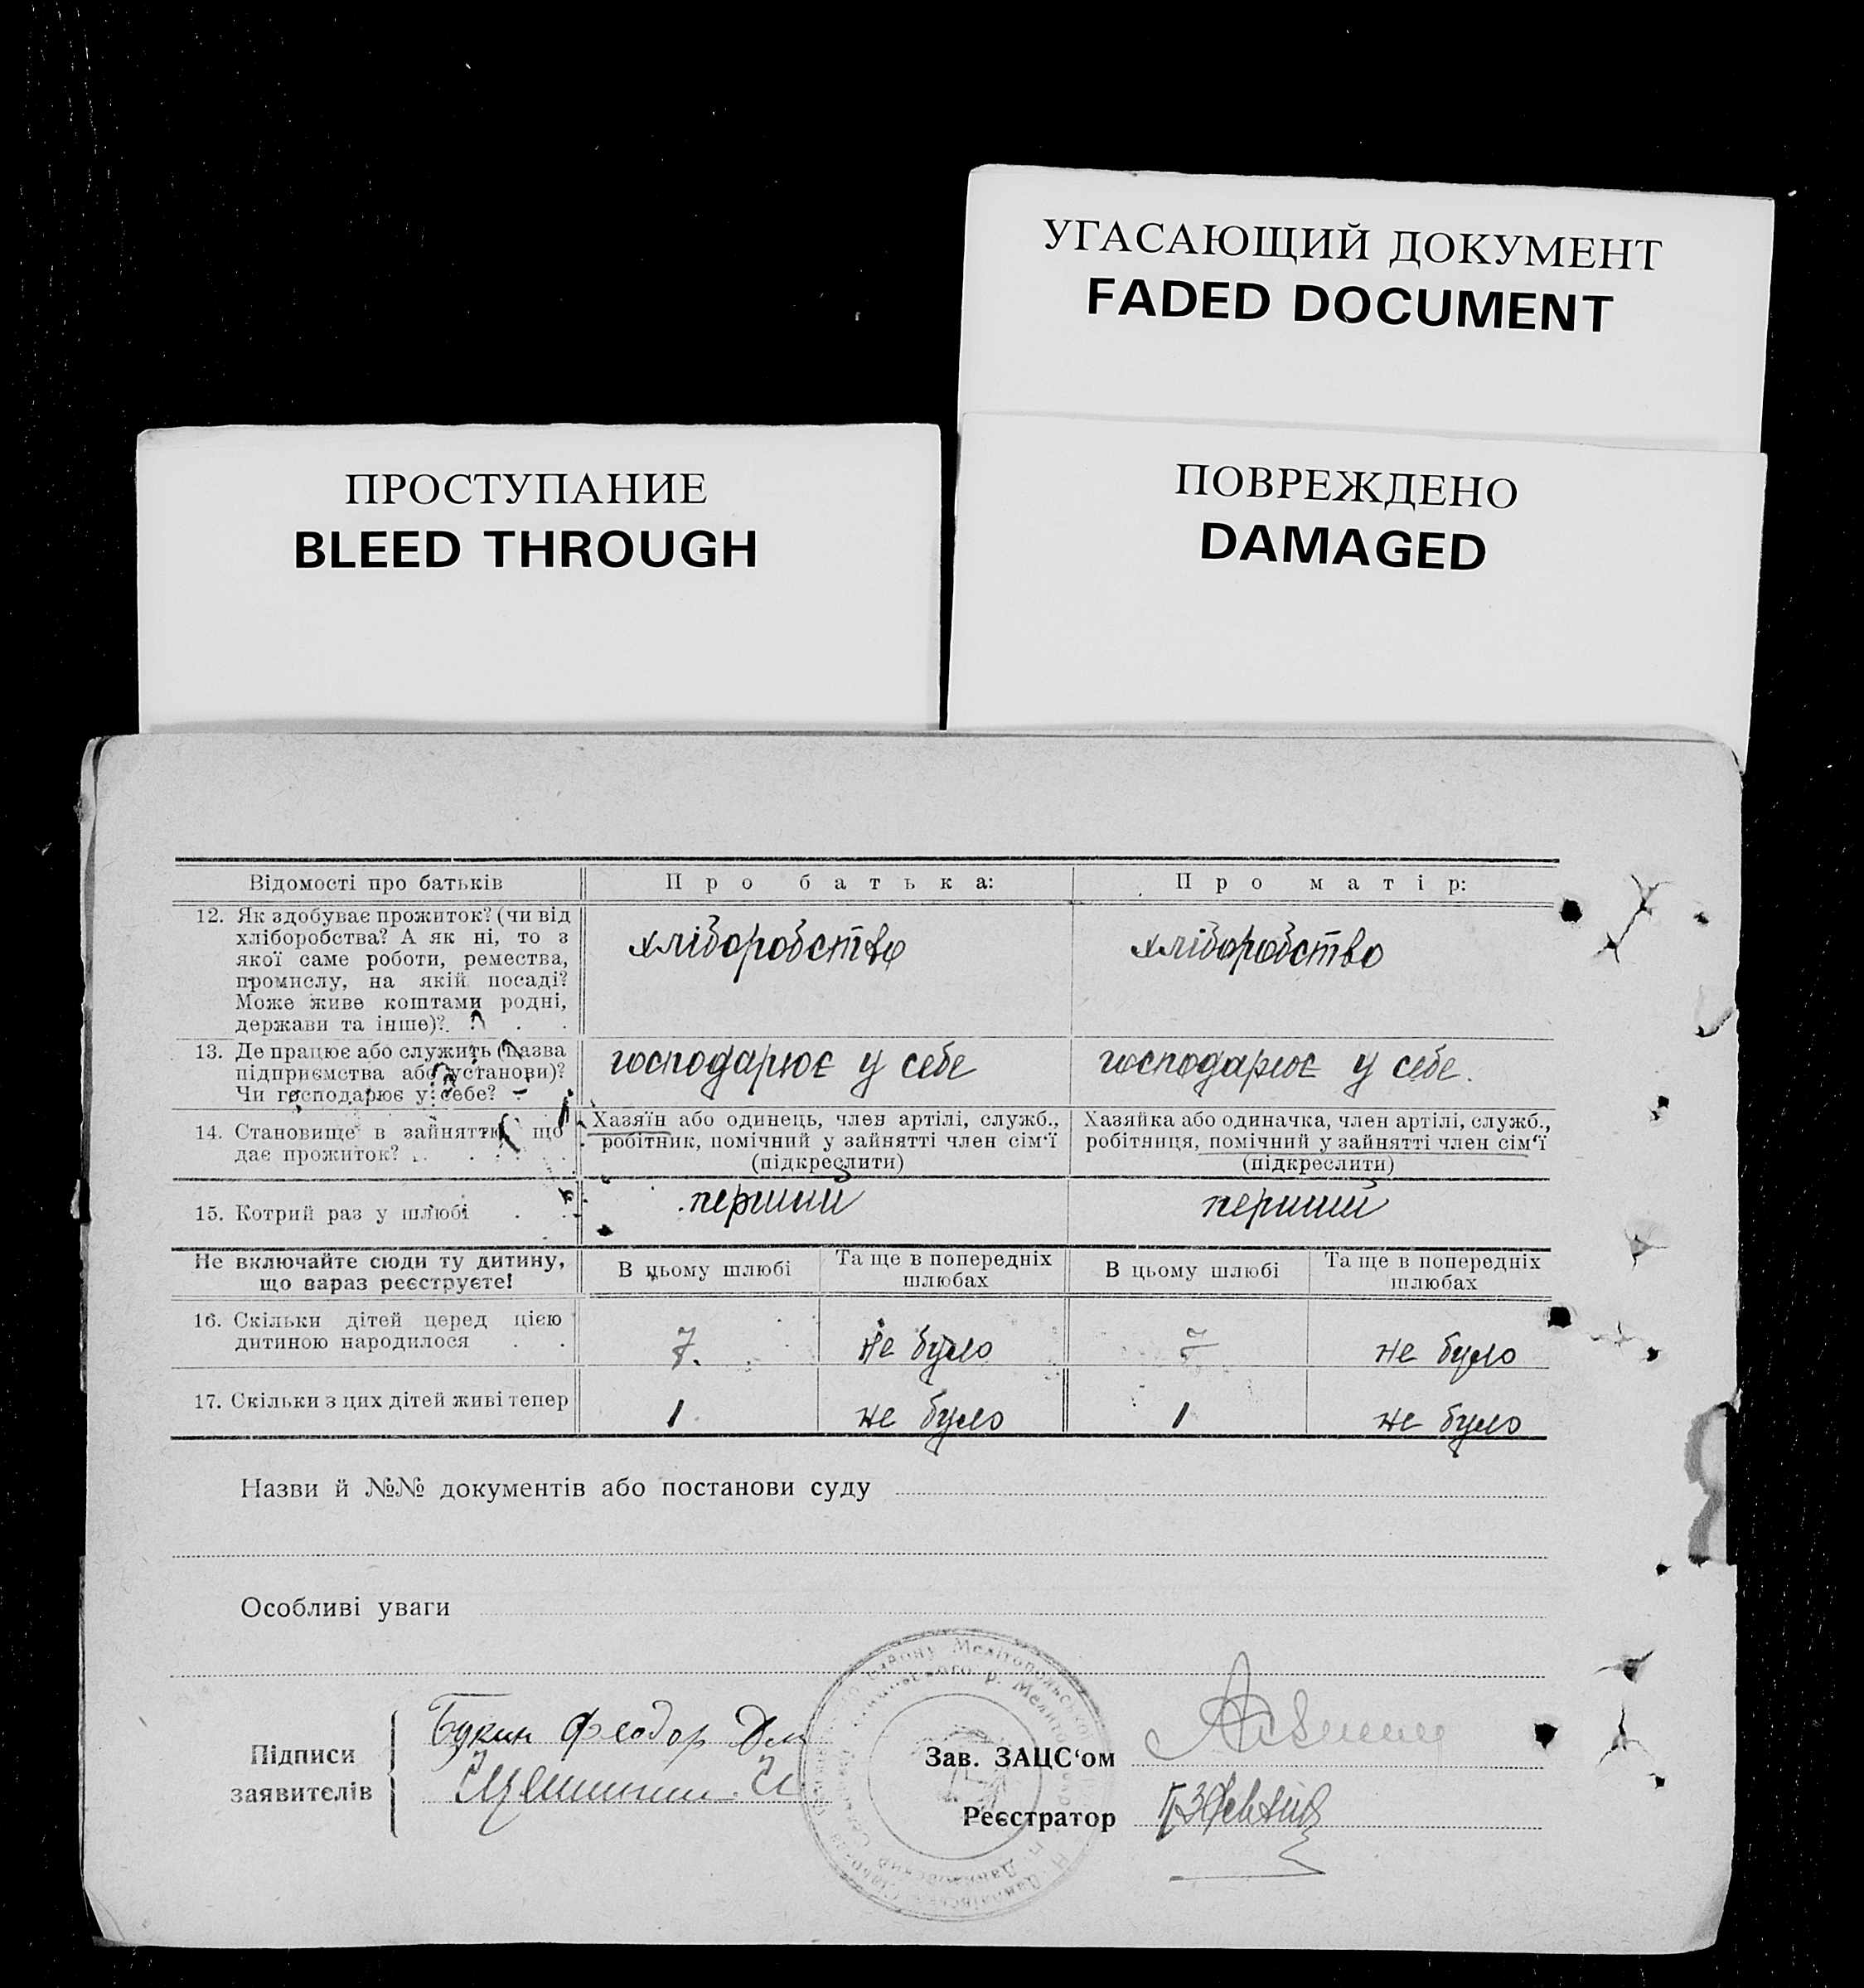 УГАСАЮЩИЙ ДОКУМЕНТ
FADED DOCUMENT
ПРОСТУПАНИЕ
BLEED THROUGH
ПОВРЕЖДЕНО
DAMAGED
Відомості про батьків
Про батька:
Про матір:
12. Як здобуває прожиток? (чи від
хліборобства? А як ні, то з
якої саме роботи, ремества,
промислу, на якій посаді?
Може живе коштами родні,
держави та інше)?
хліборобство
хліборобство
13. Де працює або служить (назва
підприємства або установи)?
Чи господарює у себе?
господарює у себе
господарює у себе.
14. Становище в зайняттю, що
дає прожиток?
Хазяїн або одинець, член артілі, служб.,
робітник, помічний у зайнятті член сім'ї
(підкреслити)
Хазяйка або одиначка, член артілі, служб.,
робітниця, помічний у зайнятті член сім'ї
(підкреслити)
15. Котрий раз у шлюбі
перший
перший
Не включайте сюди ту дитину,
що зараз реєструєте!
В цьому шлюбі
Та ще в попередніх
шлюбах
В цьому шлюбі
Та ще в попередніх
шлюбах
16. Скільки дітей перед цією
дитиною народилося
7.
не було
7
не було
17. Скільки з цих дітей живі тепер
1
не було
1
не було
Назви й №№ документів або постанови суду
Особливі уваги
Підписи
заявителів
Букин Феодор
Зав. ЗАЦС'ом
Реєстратор